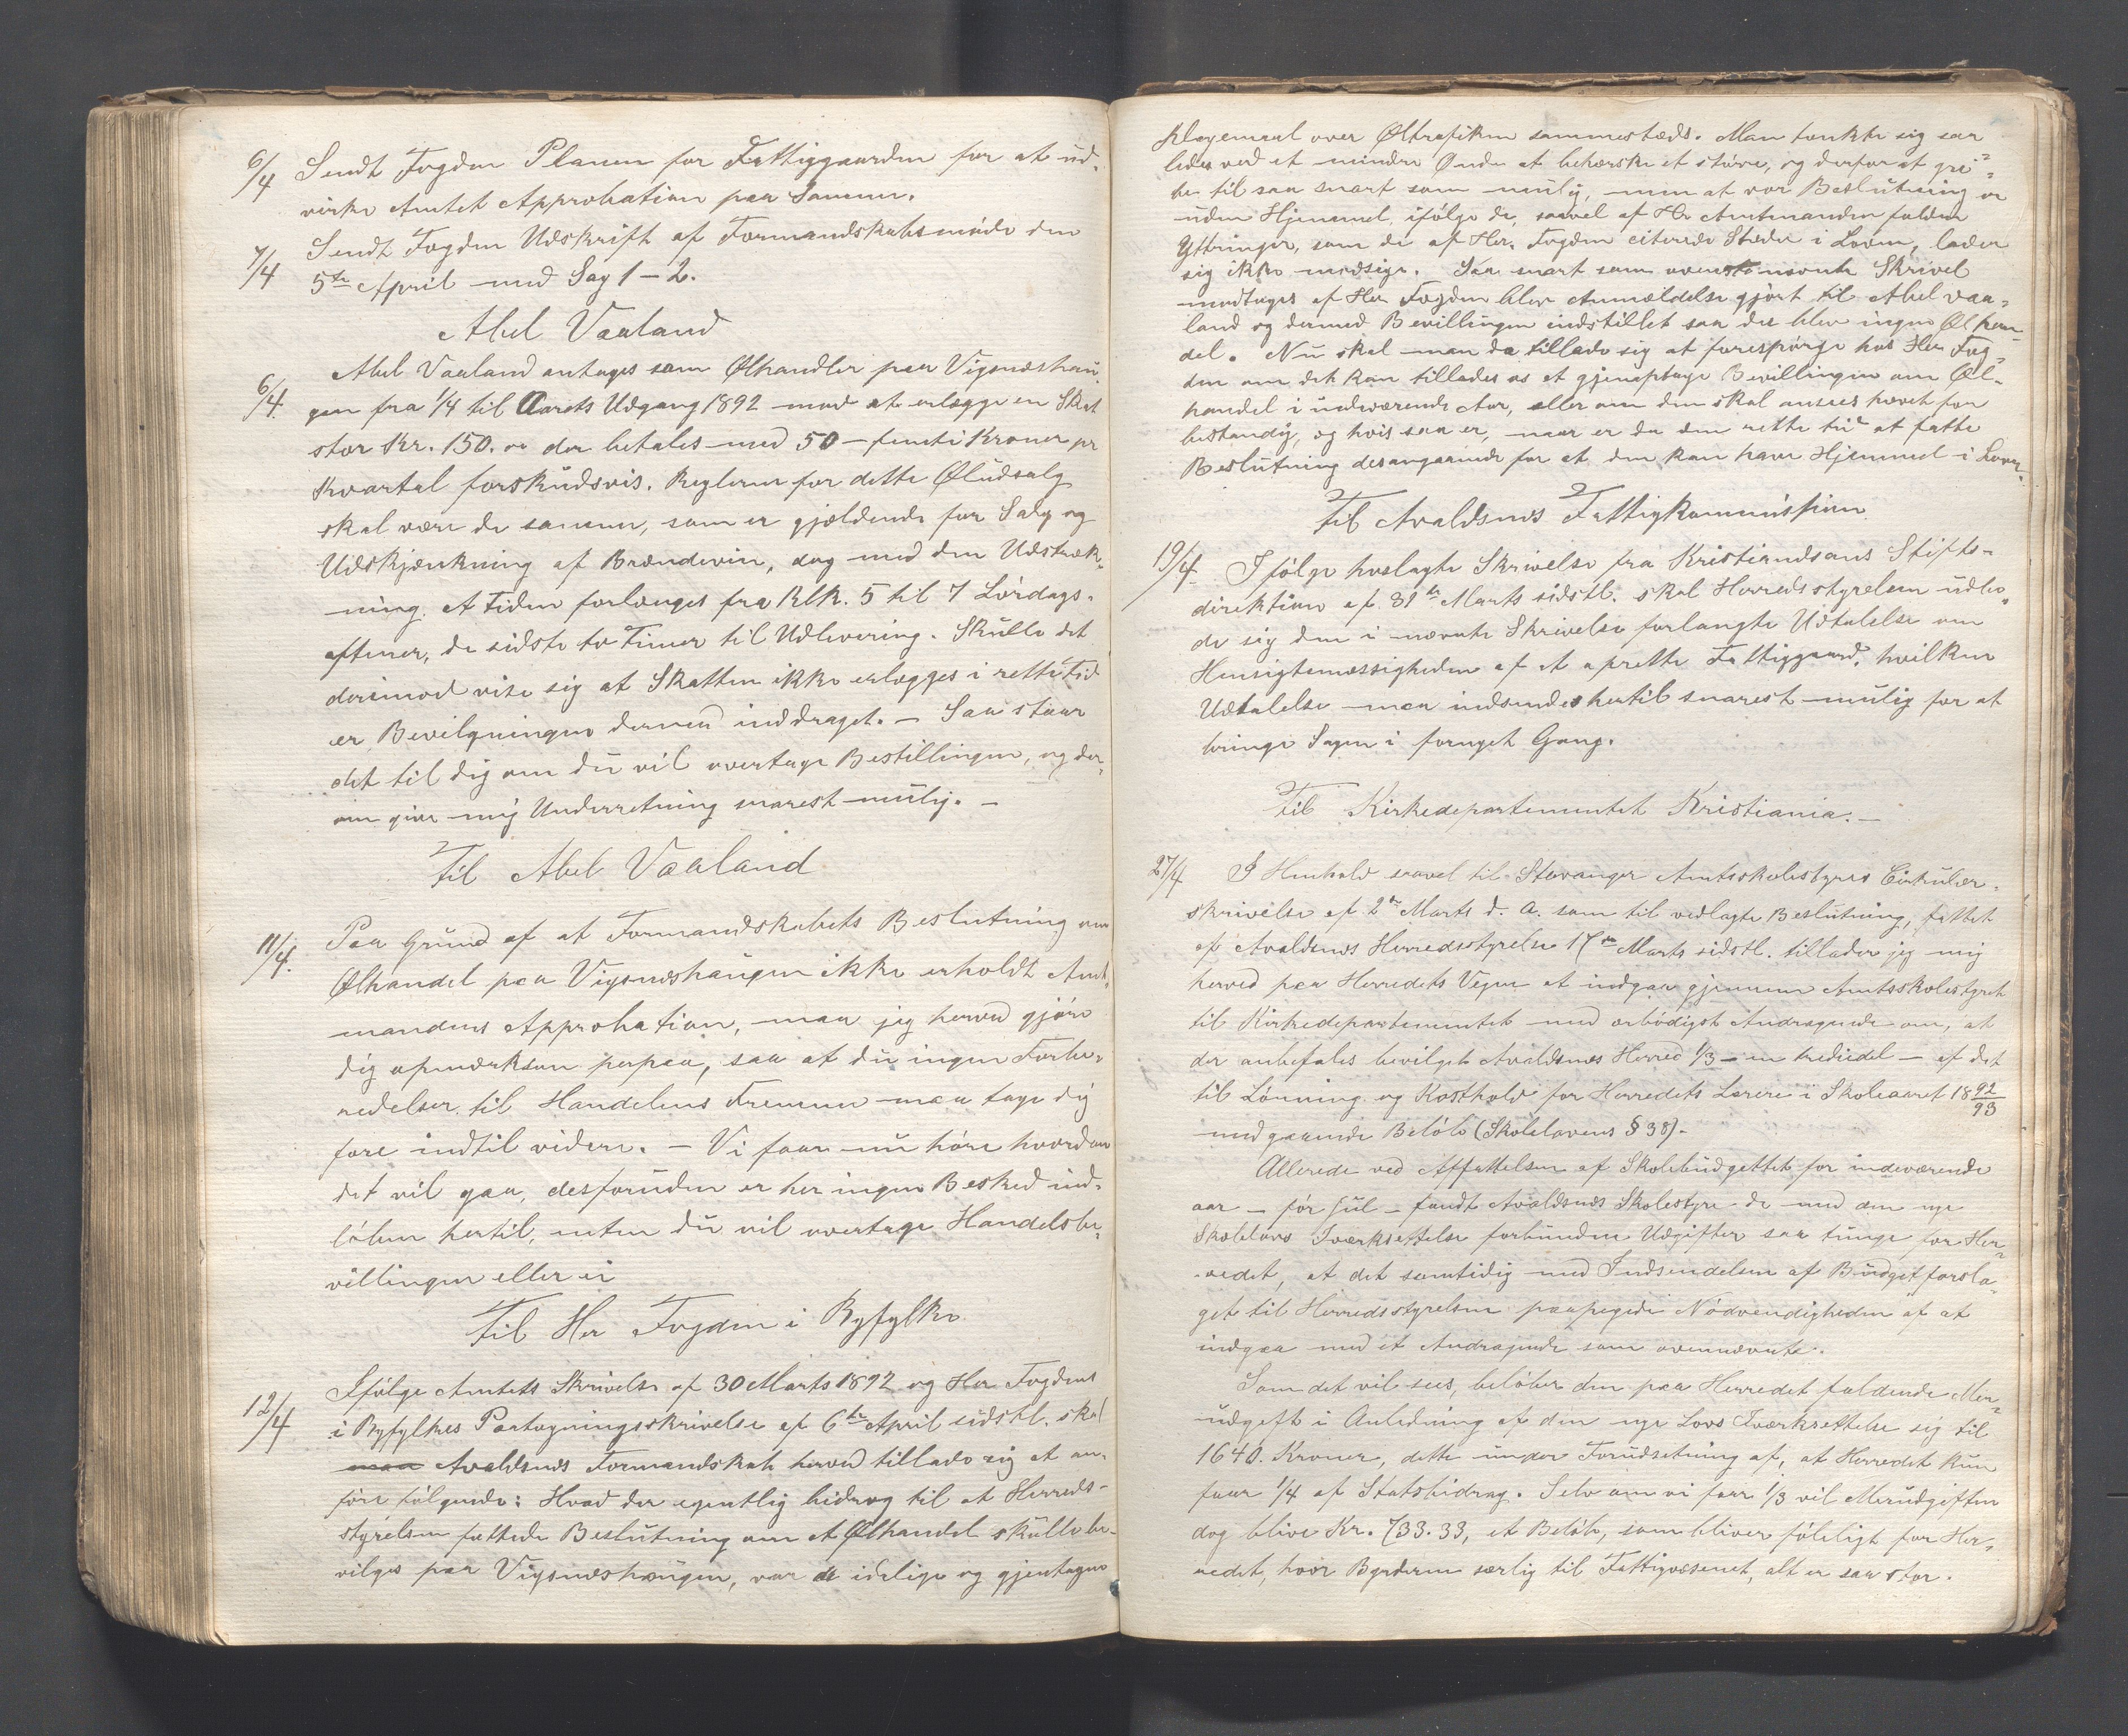 6/4 Sendt Fogden Planen for Fattiggaarden for at ud-
virke Amtets Approbation paa Samme.
7/4 Sendt Fogden Udskrift af Formandskabsmøde den
5te April med Sag 1-2.
Abel Vaaland
6/4. Abel Vaaland antages som Ølhandler paa Vigsnæshau-
gen fra 1/4 til Aarets Udgang 1892 mod at erlægge en Skat
stor Kr. 150.00 der betales med 50 - femti Kroner pr
Kvartal forskudsvis. Reglerne for dette Øludsalg
skal være de samme, som er gjældende for Salg og
Udskjænkning af Brændevin, dog med den Udstræk-
ning at Tiden forlænges fra Klk. 5 til 7 Lørdags-
aftener, de sidste to Timer til Udlevering. Skulle det
derimod vise sig at Skatten ikke erlægges i rette Tid
er Bevilgningen dermed inddraget. - Saa staar
det til dig om du vil overtage Bestillingen, og der-
om give mig Underretning snarest mulig. -
Til Abel Vaaland
11/4. Paa Grund af at Formandskabets Beslutning om
Ølhandel paa Vigsnæshaugen ikke erholdt Amt-
mandens Approbation, maa jeg herved gjøre
dig opmærksom derpaa, saa at du ingen Forbe-
redelser til Handelens Fremme maa tage dig
fore indtil videre. - Vi faar nu høre hvordan
det vil gaa, desforuden er her ingen Besked ind-
løben hertil, enten du vil overtage Handelsbe-
villingen eller ei
Til Her Fogden i Ryfylke
12/4 Ifølge Amtets Skrivelse af 30 Marts 1892 og Her Fogdens
i Ryfylkes Paategningsskrivelse af 6te April sidstl. skal
maa Avaldsnes Formandskab herved tillade sig at an-
føre følgende: Hvad der egentlig bidrog til at Herreds-
styrelsen fattede Beslutning om at Ølhandel skulle be-
vilges paa Vigsnæshaugen, var de idelige og gjentagne
Klagemaal over Øltrafiken sammesteds. Man tænkte sig saa
ledes ved et mindre Onde at bekærske et større, og derfor at gri-
be til saa snart som mulig, men at vor Beslutning er
uden Hjemmel ifølge de, saavel af Hr Amtmanden faldne
Yttringer, som de af Her. Fogden citerede Steder i Loven, lader
sig ikke modsige. Saa snart som ovennævnte Skrivel
modtoges af Her Fogden blev Anmældelse gjort til Abel Vaa-
land og dermed Bevillingen indstillet saa der blev ingen Ølhan-
del. Nu skal man da tillade sig at forespørge hos Her Fog-
den om det kan tillades os at gjenoptage Bevillingen om Øl-
handel i indeværende Aar, eller om den skal ansees hævet for
bestandig, og hvis saa er, naar er da den rette Tid at fatte
Beslutning desangaaende for at den kan have Hjemmel i Loven.
Til Avaldsnes Fattigkommission
19/4. Ifølge hoslagte Skrivelse fra Kristiansands Stifts-
direktion af 31te Marts sidstl. skal Herredsstyrelsen udbe-
de sig den i nævnte Skrivelse forlangte Udtalelse om
Hensigtsmæssigheden af at oprette Fattiggaard, hvilken
Udtalelse maa indsendes hertil snarest mulig for at
bringe Sagen i fornyet Gang.
Til Kirkedepartementet Kristiania. -
27/4 I Henhold saavel til Stavanger Amtsskolestyres Cirkulær-
skrivelse af 2den Marts d. A. som til vedlagte Beslutning, fattet
af Avaldsnes Herredsstyrelse 17de Marts sidstl. tillader jeg mig
herved paa Herredets Vegne at indgaa gjennem Amtsskolestyret
til Kirkedepartementet med ærbødigst Andragende om, at
der anbefales bevilget Avaldsnes Herred 1/3 - en trediedel - af det
til Lønning og Kosthold for Herredets Lærere i Skoleaaret 1892/93
medgaaende Beløb (Skolelovens § 38). -
Allerede ved Affattelsen af Skolebudgettet for indeværende
aar - før Jul - fandt Avaldsnes Skolestyre de med den nye
Skolelovs Iværksættelse forbundne Udgifter saa tunge for Her-
redet, at det samtidig med Indsendelsen af Budgetforsla-
get til Herredsstyrelsen paapegede Nødvendigheden af at
indgaa med et Andragende som ovennævnte.
Som det vil sees, beløber den paa Herredet faldende Mer-
udgift i Anledning af den nye Lovs Iværksettelse sig til
1640. Kroner, dette under Forudsetning af, at Herredet kun
faar 1/4 af Statsbidrag. Selv om vi faar 1/3 vil Merudgiften
dog blive Kr. 733.33, et Beløb, som bliver føleligt for Her-
redet, hvor Byrderne særlig til Fattigvæsenet, alt er saa stor.